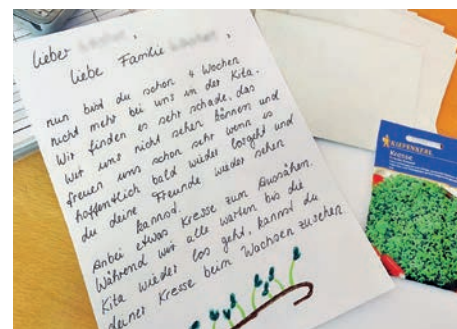 lieber
liebe Familie
nun bist du schon 4 Wochen
nicht mehr bei uns in der Kita.
Wir finden es sehr schade, das
wir uns nicht sehen können und
freuen uns schon sehr wenn es
hoffentlich bald wieder losgeht und
du deine Freunde wieder sehen
kannst.
Anbei etwas Kresse zum Aussähen.
Während wir alle warten bis die
Kita wieder los geht, kannst du
deiner Kresse beim Wachsen zusehen.
KIEPENKERL
Kresse